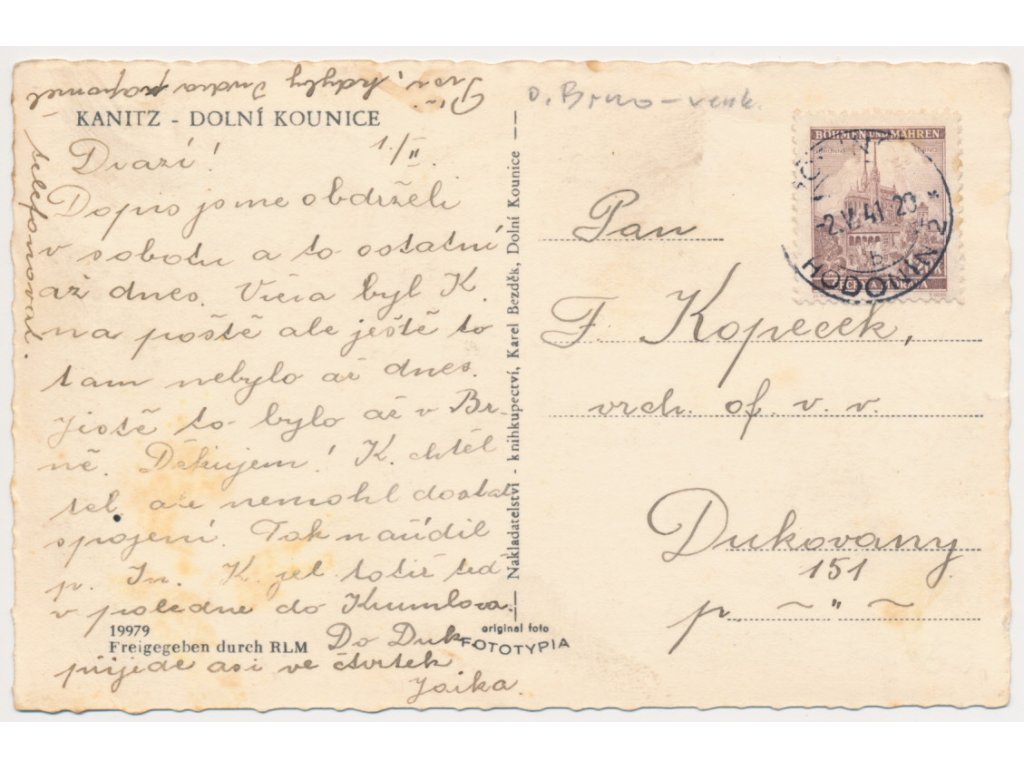 Piš, kdyby Jindra zapomněl
telefonoval.
o. Brno-venk.
KANITZ - DOLNÍ KOUNICE
Drazí! 1./II.
Dopis jsme obdrželi
v sobotu a to ostatní
až dnes. Včera byl K.
na poště ale ještě to
tam nebylo až dnes.
Jistě to bylo až v Br-
ně. Děkujem! K. chtěl
tel. ale nemohl dostat
spojení. Tak nařídil
p. In. K. jel totiž teď
v poledne do Krumlova.
19979
Freigegeben durch RLM
Do Duk.
přijede asi ve čtvrtek
Jaika.
Nakladatelství - knihkupectví, Karel Bezděk, Dolní Kounice
original foto
FOTOTYPIA
BÖHMEN UND MÄHREN
ČECHY A MORAVA
HODONÍN 2
-2.V.41 20
b
Pan
F. Kopeček,
vrch. of. v. v.
Dukovany
151
p. ~ " ~